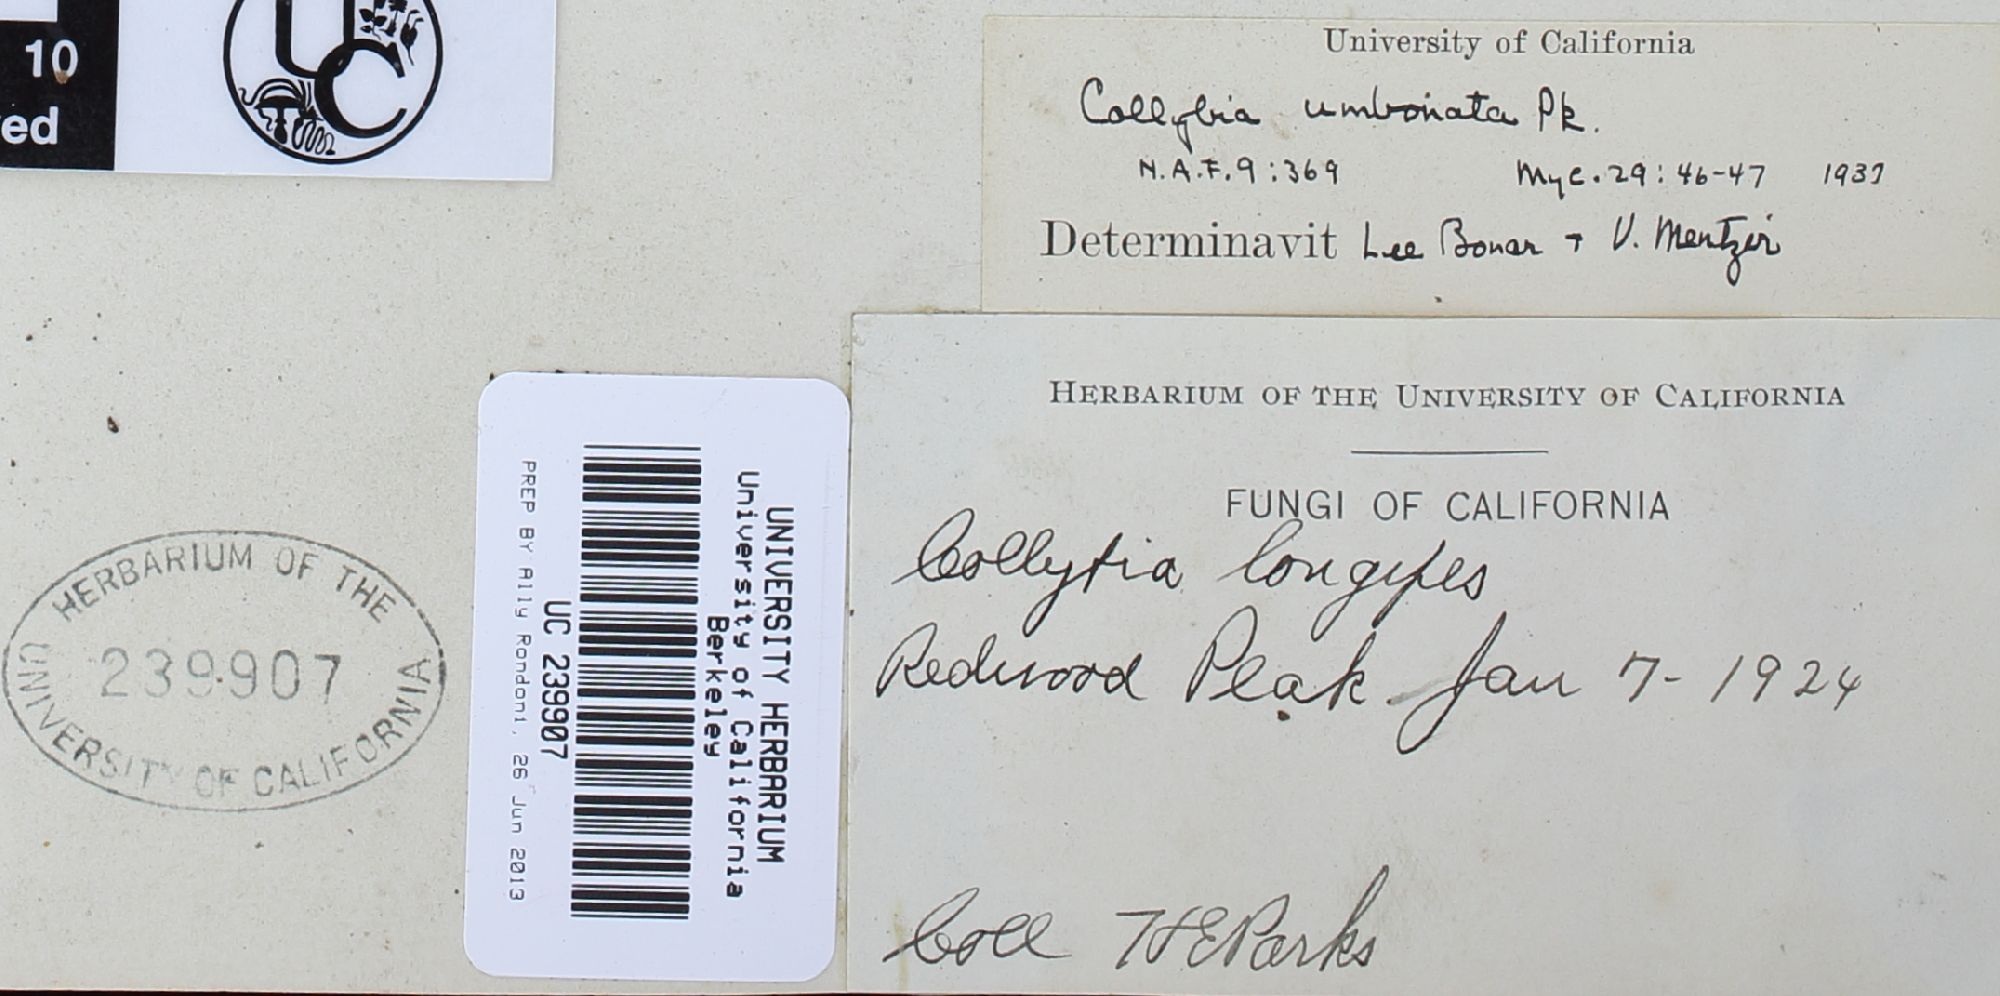 10
ed
UC
University of California
Collybia umbonata Pk.
N.A.F. 9:369 Myc. 29:46-47 1937
Determinavit Lee Bonar + V. Mentzer
HERBARIUM OF THE UNIVERSITY OF CALIFORNIA
FUNGI OF CALIFORNIA
Collybia longipes
Redwood Peak Jan 7-1924
Coll HEParks
UNIVERSITY HERBARIUM
University of California
Berkeley
UC 239907
PREP BY Ally Rondoni, 26 Jun 2013
HERBARIUM OF THE
239907
UNIVERSITY OF CALIFORNIA